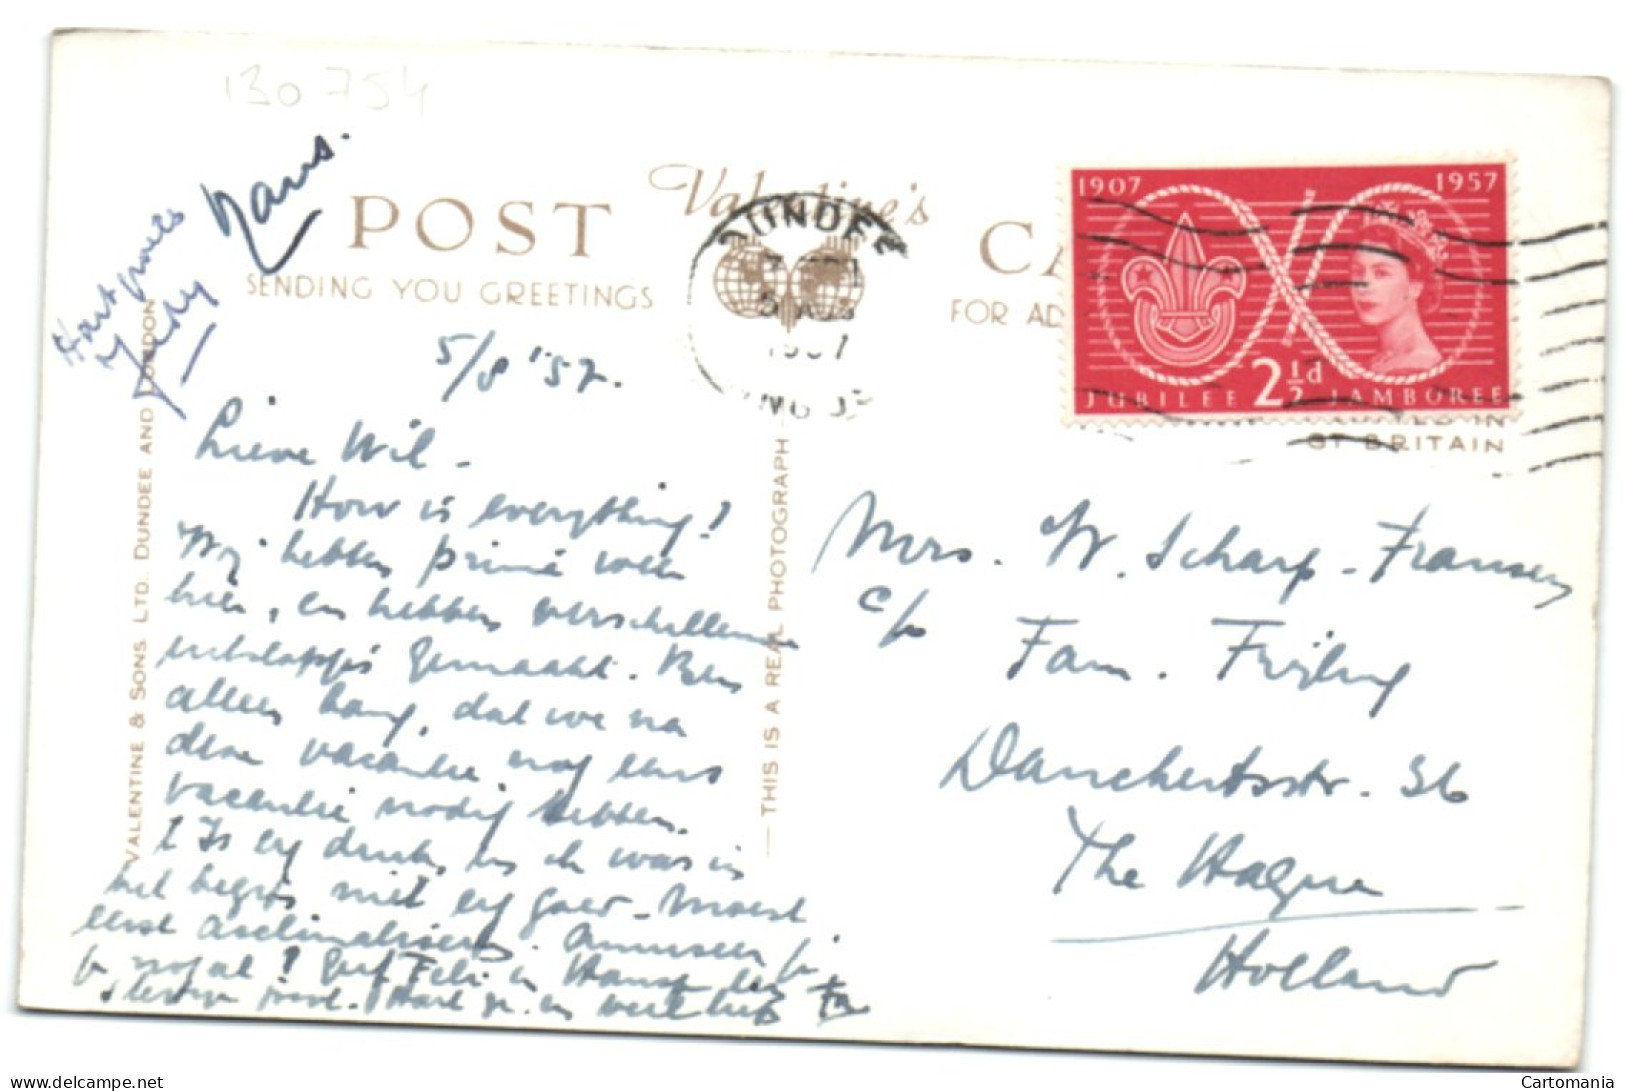 130754
Hans.
Hart. groets
Judy
POST CA
Valentine's
SENDING YOU GREETINGS
FOR AD
DUNDEE
5 AUG
1957
1907 1957
JUBILEE 2½d JAMBOREE
IN
GT BRITAIN
VALENTINE & SONS. LTD. DUNDEE AND LONDON
THIS IS A REAL PHOTOGRAPH
5/8 '57.
Lieve Wil -
How is everything?
Wij hebben prima weer
hier, en hebben verschillende
uitstapjes gemaakt. Ben
alleen bang, dat we na
deze vacantie nog eens
vacantie nodig hebben.
't Is erg druk, en ik was in
het begin niet erg goed - Moest
eerst acclimatiseren. Amuseer je
je nogal? Geef en Hansje
Hart. gr. en veel liefs
Mrs. W. Scharp - Fransen
c/o
Fam. Frijling
Danckertsstr. 36
The Hague
Holland
Cartomania